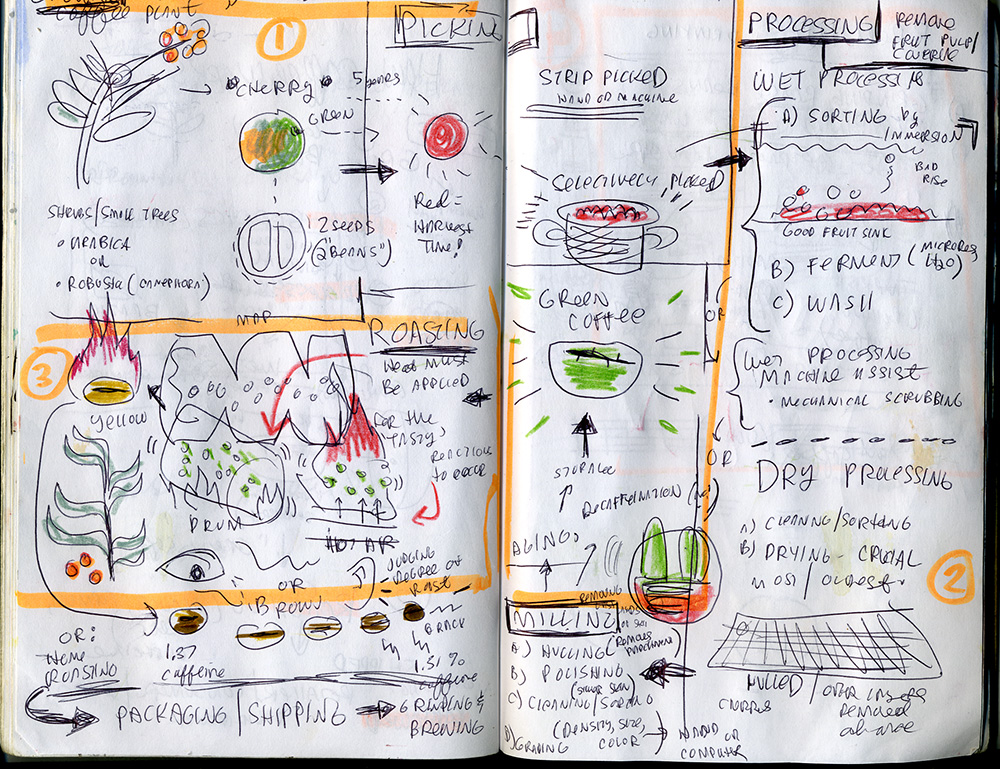 Coffee PLANT
1
PICKING
CHERRY
5 years
GREEN
Red =
HARVEST
TIME!
2 SEEDS
(2 "BEANS")
SHRUBS/SMALL TREES
• ARABICA
OR
• ROBUSTA
STRIP PICKED
HAND OR MACHINE
SELECTIVELY PICKED
PROCESSING
REMOVE
FRUIT PULP/
WET PROCESSING
A) SORTING by
IMMERSION
BAD
RISE
GOOD FRUIT SINK
B) FERMENT (
H2O)
C) WASH
OR
WET PROCESSING
MACHINE ASSIST
• MECHANICAL SCRUBBING
OR
DRY PROCESSING
A) CLEANING/SORTING
B) DRYING - CRUCIAL
2
HULLED
removed
GREEN
COFFEE
STORAGE
DECAFFEINATION
AGING?
MILLING
A) HULLING (Remove PARCHMENT)
B) POLISHING
(silver skin)
C) CLEANING/SORTING
(DENSITY, SIZE,
COLOR)
D) GRADING
HAND OR
COMPUTER
3
ROASTING
Heat must
BE APPLIED
FOR THE
TASTY
REACTIONS
to occur
yellow
DRUM
HOT AIR
OR
JUDGING
DEGREE OF
BROWN
BLACK
OR:
HOME
ROASTING
1.37
caffeine
1.31 %
caffeine
PACKAGING | SHIPPING
GRINDING &
BREWING